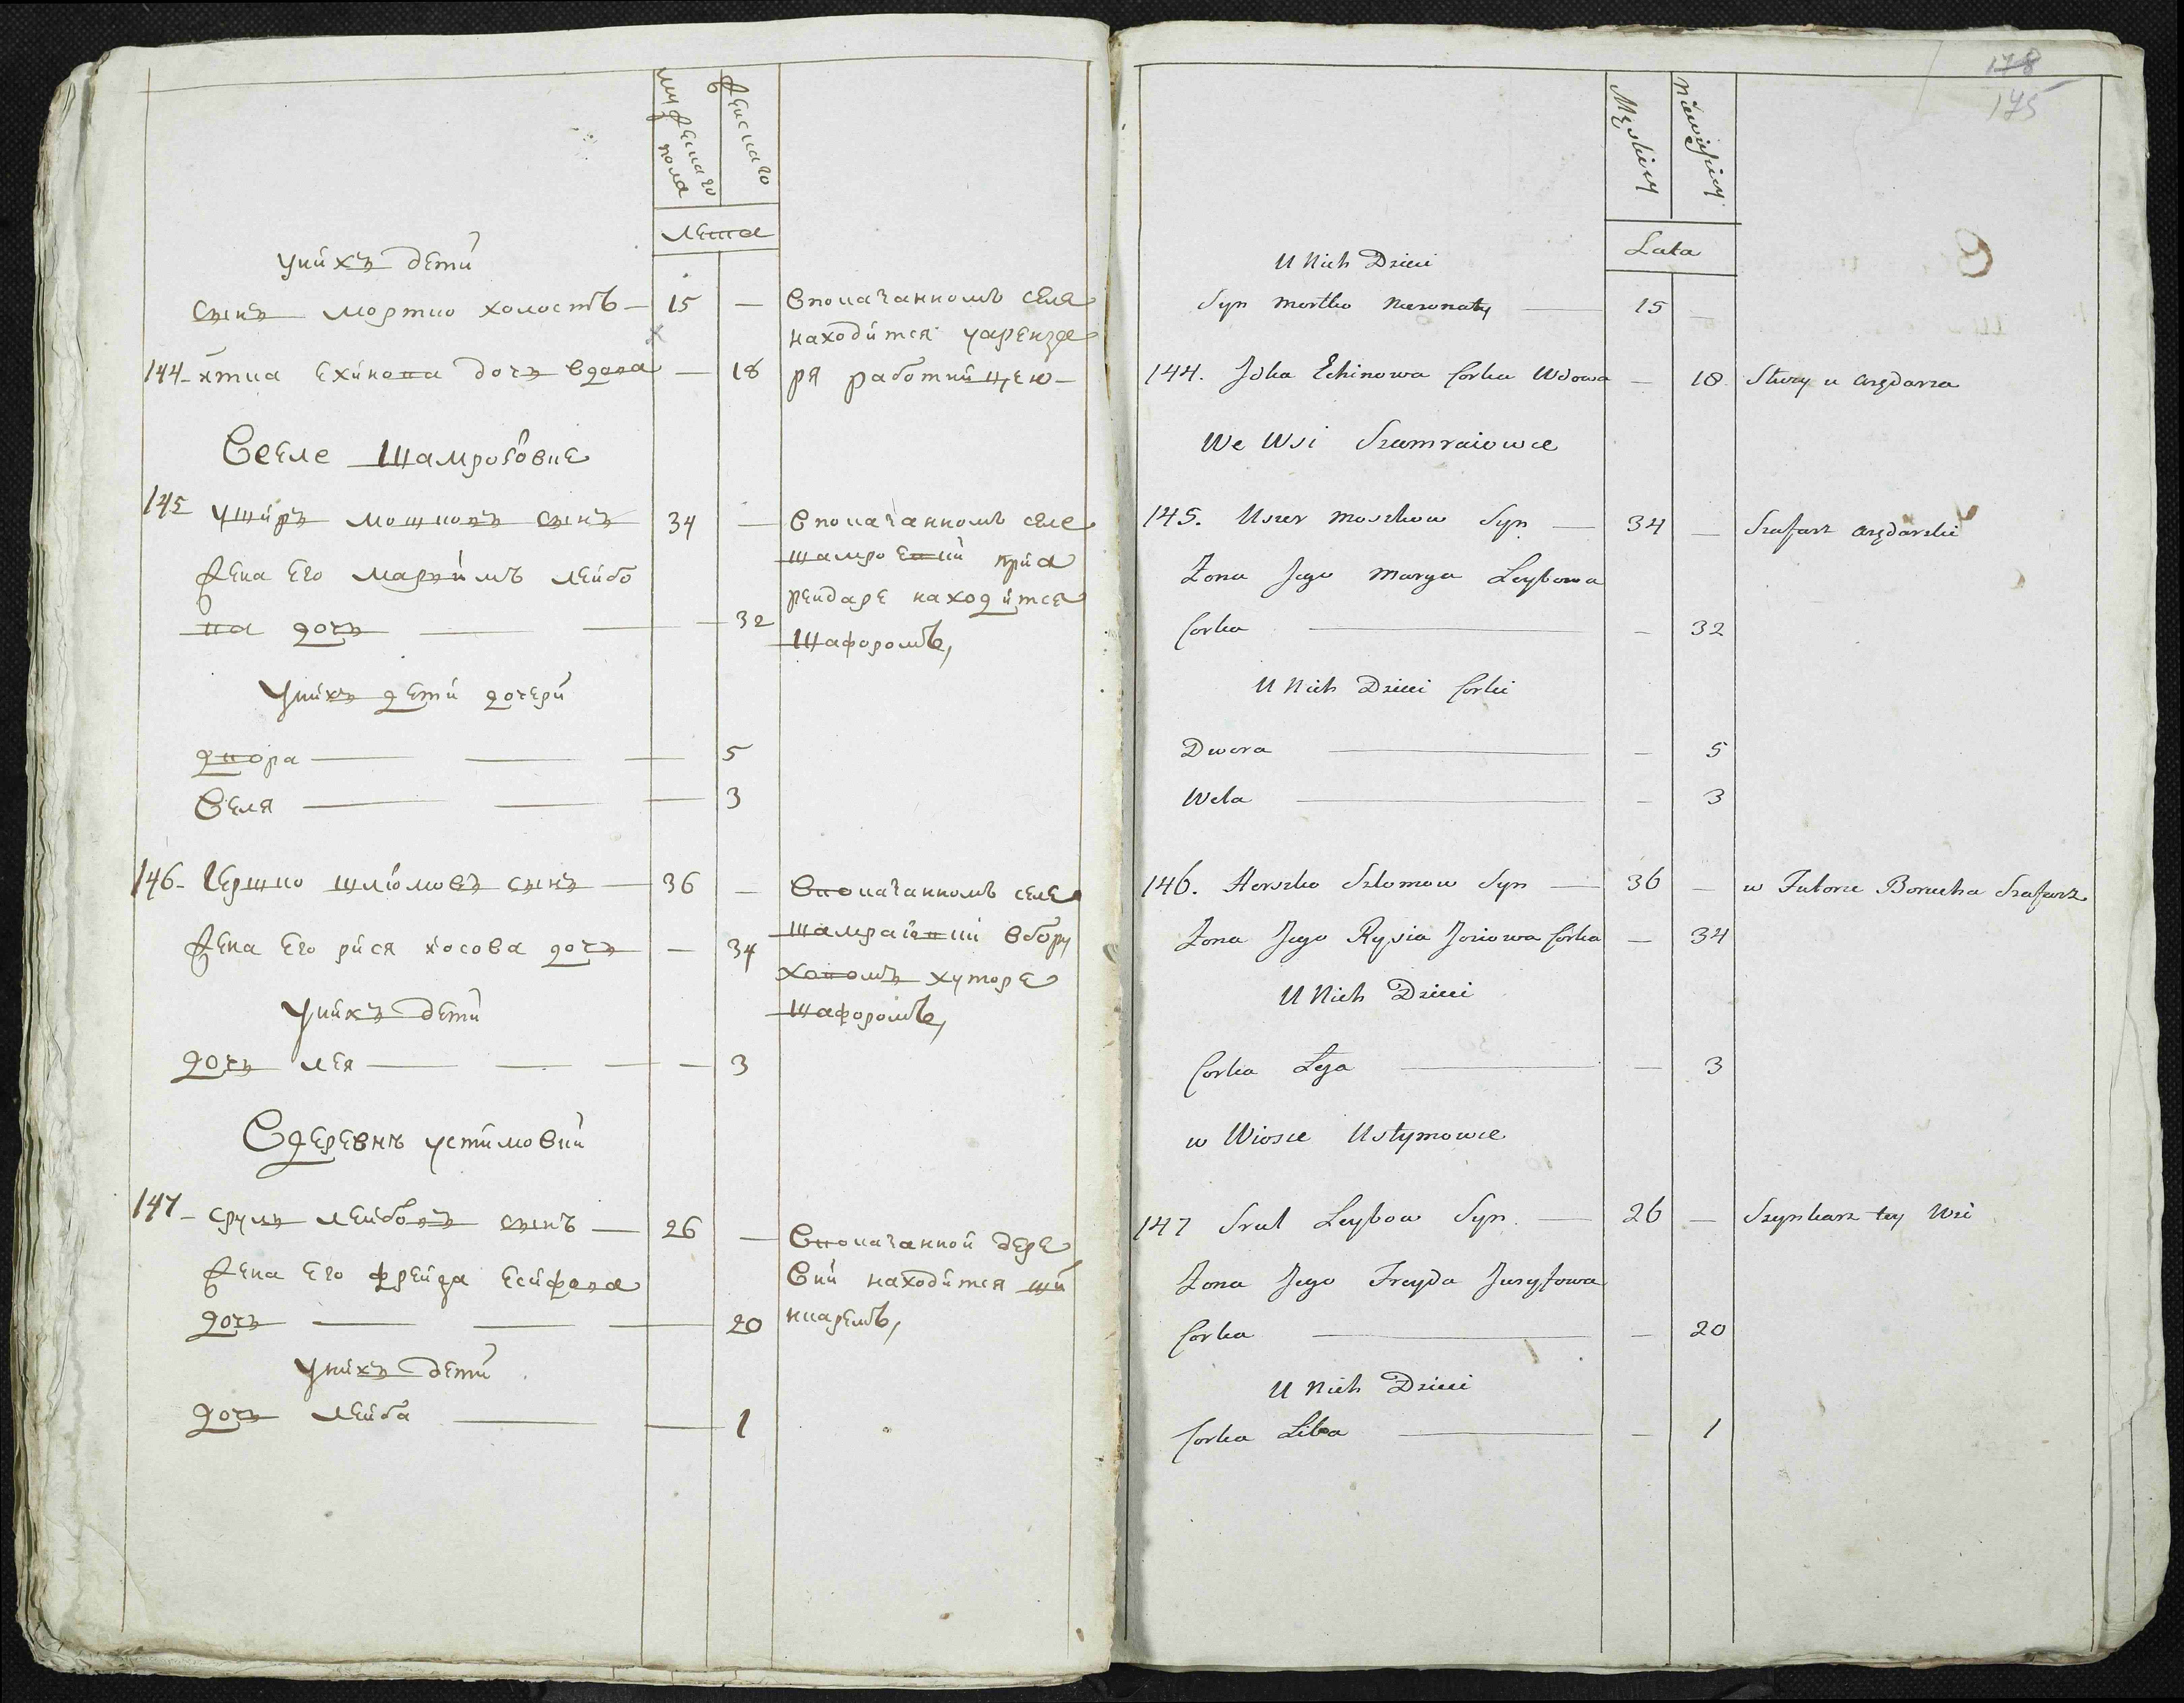 мужескаго пола
женскаго
лета
У них детй
сынъ Мортко холостъ — 15 —
Впоказанномъ селя
находится у арендa
ря работницею —
144 — итка Ехинова дочъ вдова — 18
Вселе Шамровке
145 Ушйръ Мошковъ сынъ 34 —
Впоказанномъ селе
Шамроевки при а
рендаре находится
Шафоромъ,
Жена его Марямъ Лейбо
ва дочъ — — — 32
У нихъ дети дочери
двора — — — 5
Веля — — — 3
146 — Гершко Шлюмовъ сынъ — 36 —
Впоказанномъ селе
Шамрайвки вбору
ховомъ хуторе
Шафоромъ,
Жена его Рися Иосова дочъ — 34
У нихъ дети
дочъ Лея — — — — 3
Вдеревнъ Устимовки
147 — Сруль Лейбовъ сынъ — 26 —
Впоказанной дере
вни находится ши
нкаремъ,
Жена его Фрейда Есифова
дочъ — — — 20
У нихъ дети
дочъ Лейба — — 1
178
175
Męskiey
Niewieściey
Lata
U Nich Dzieci
Syn Mortko Nieżonaty — 15 —
144. Jdka Echinowa Corka Wdowa — 18. Służy u arędarza
We Wsi Szamraiowce
145. Uszer Moszkow Syn — 34 — Szafarz arędarski
Żona Jego Marya Leybowa
Corka — — 32
U Nich Dzieci Corki
Dwora — — 5
Wela — — 3
146. Herszko Szlomow Syn — 36 — w Futorze Borucha Szafarz
Żona Jego Rysia Josiowa Corka — 34
U Nich Dzieci
Corka Leja — — 3
w Wiosce Ustymowce
147 Srul Leybow Syn. — 26 — Szynkarz tey Wsi
Żona Jego Freyda Juzyfowa
Corka — — 20
U Nich Dzieci
Corka Liba — — 1